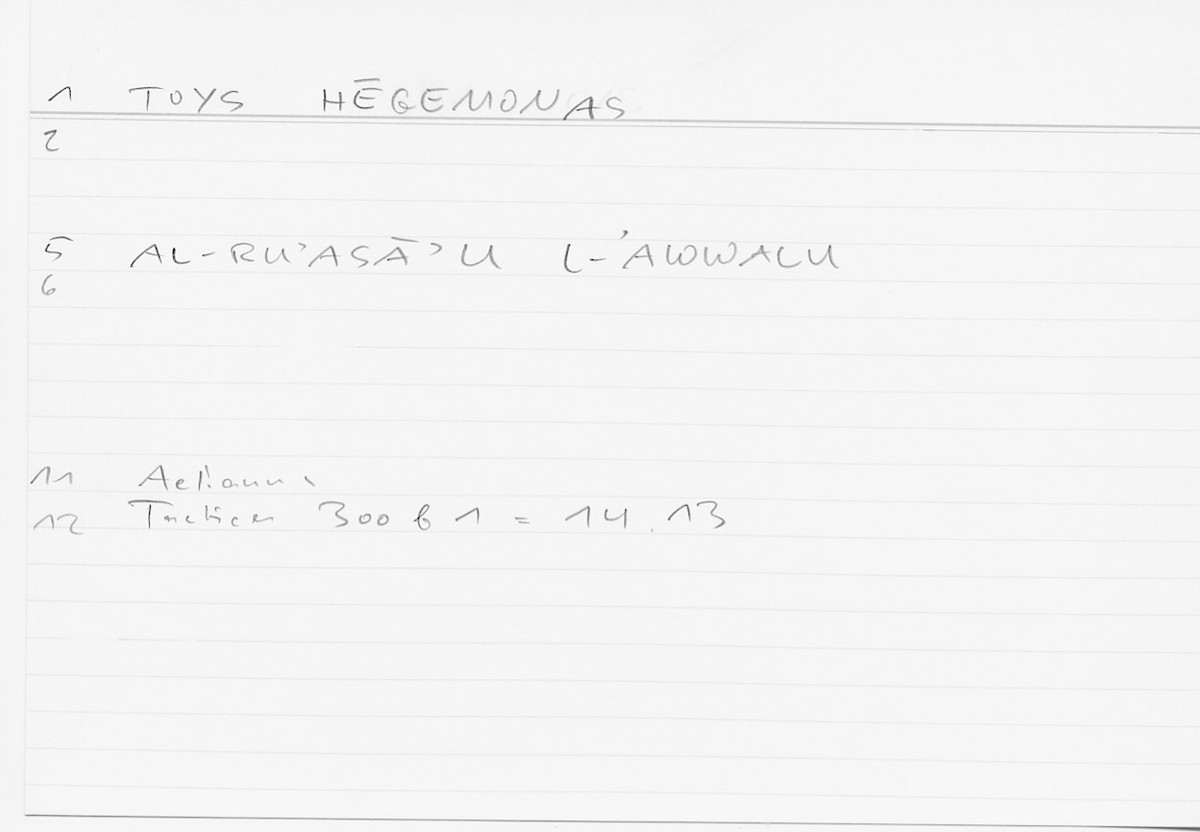 1 TOYS HĒGEMONAS
2
5 AL-RU’ASĀ’U L-’AWWALU
6
11 Aelianus
12 Tactica 300 b 1 = 14.13